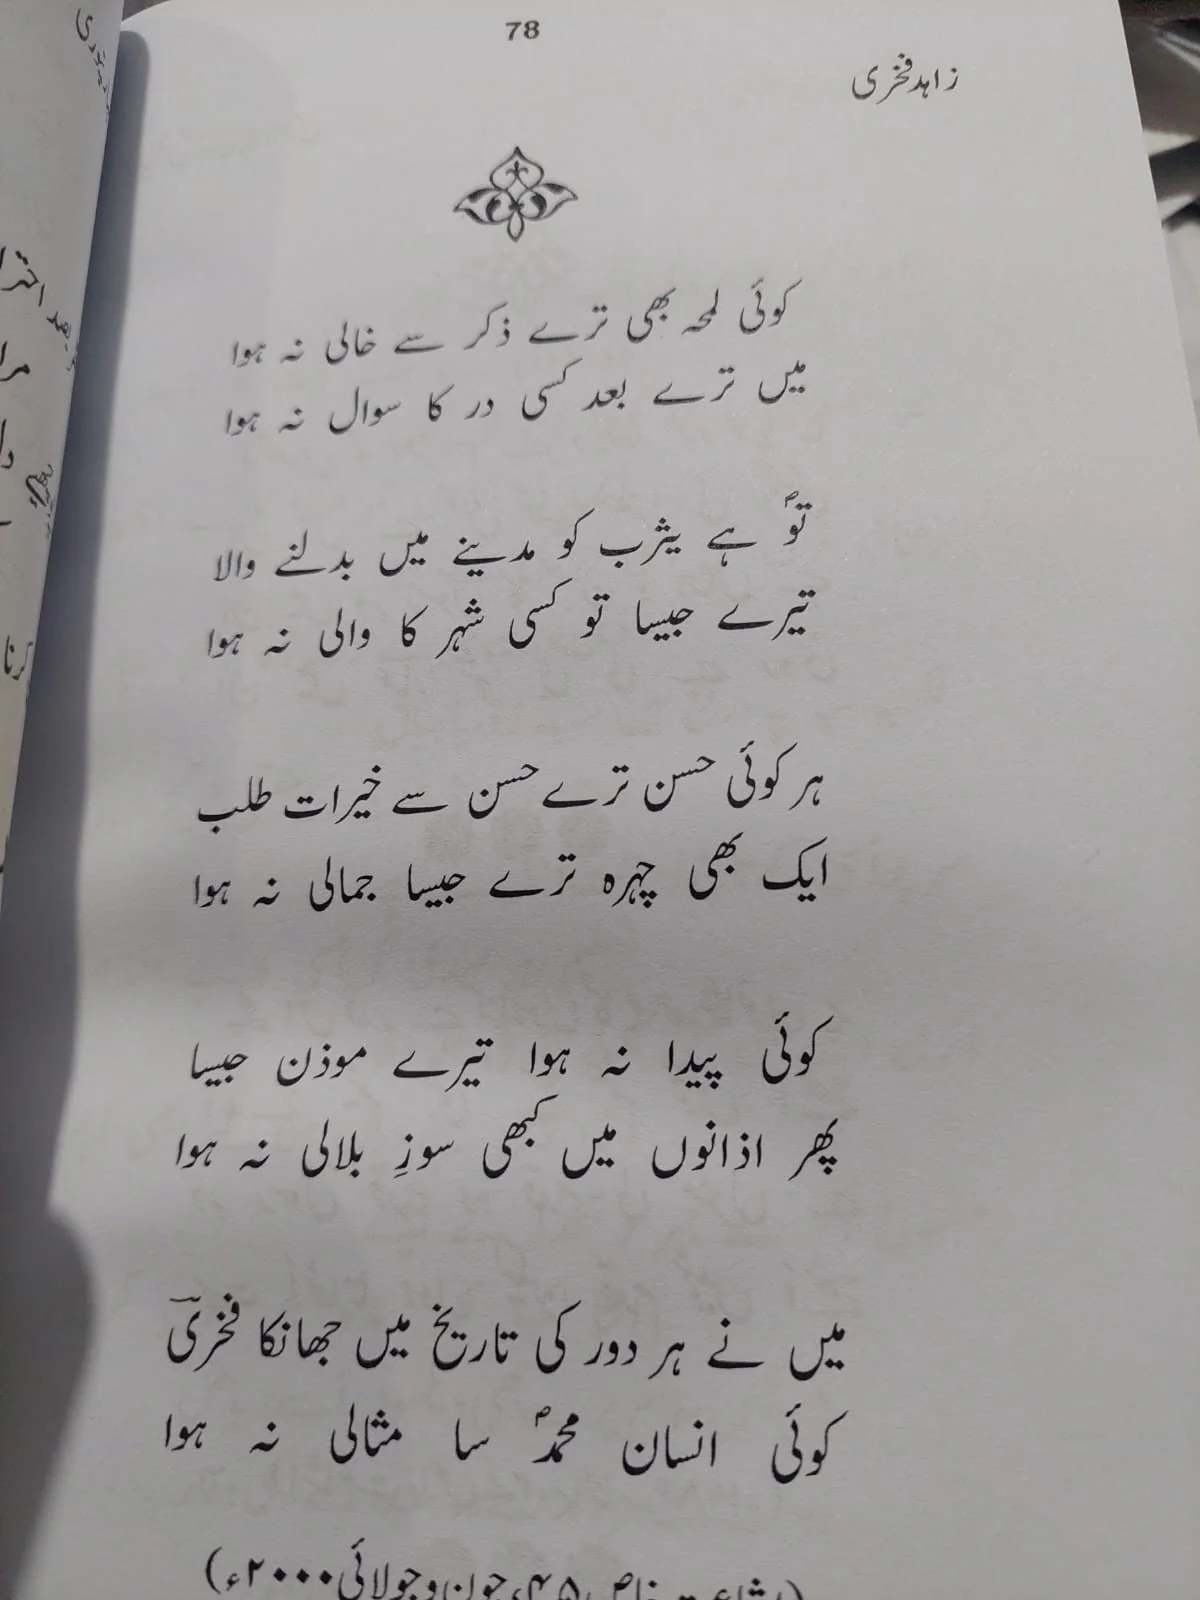 78
زاہد فخری
کوئی لمحہ بھی ترے ذکر سے خالی نہ ہوا
میں ترے بعد کسی در کا سوال نہ ہوا
توؐ ہے یثرب کو مدینے میں بدلنے والا
تیرے جیسا تو کسی شہر کا والی نہ ہوا
ہر کوئی حسن ترے حسن سے خیرات طلب
ایک بھی چہرہ ترے جیسا جمالی نہ ہوا
کوئی پیدا نہ ہوا تیرے موذن جیسا
پھر اذانوں میں کبھی سوزِ بلالی نہ ہوا
میں نے ہر دور کی تاریخ میں جھانکا فخریؔ
کوئی انسان محمدؐ سا مثالی نہ ہوا
خاص ۴۵، جون و جولائی ۲۰۰۰ء)